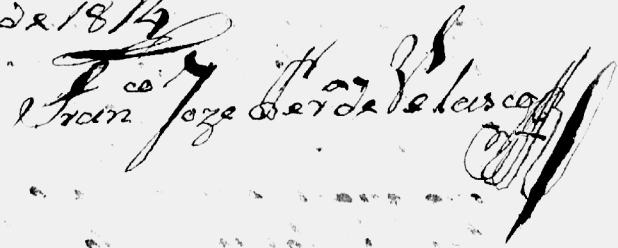 de 1814
Fran.co Joze Per.a de Velasco